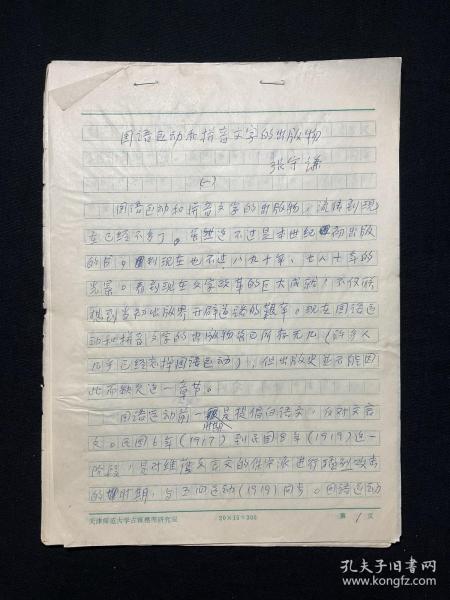 国语运动和拼音文字的出版物
张守谦
(一)
国语运动和拼音文字的出版物，流传到现
在已经不多了。虽然这不过是本世纪初出版
的书。到现在也不过八九十年，七八十年的
光景。看到现在文字改革的巨大成就，不仅联
想到当初出版界开辟道路的艰辛。现在国语运
动和拼音文字的出版物虽已所存无几（许多人
几乎已经忘掉国语运动），但出版史并不能因
此而缺失这一章节。
国语运动前一时期是提倡白话文，反对文言
文。民国6年（1917）到民国8年（1919）这一
阶段，是对维护文言文的保守派进行猛烈攻击
的时期，与五四运动（1919）同步。国语运动
天津师范大学古籍整理研究室
20×15=300
第 1 页
孔夫子旧书网
www.kongfz.com